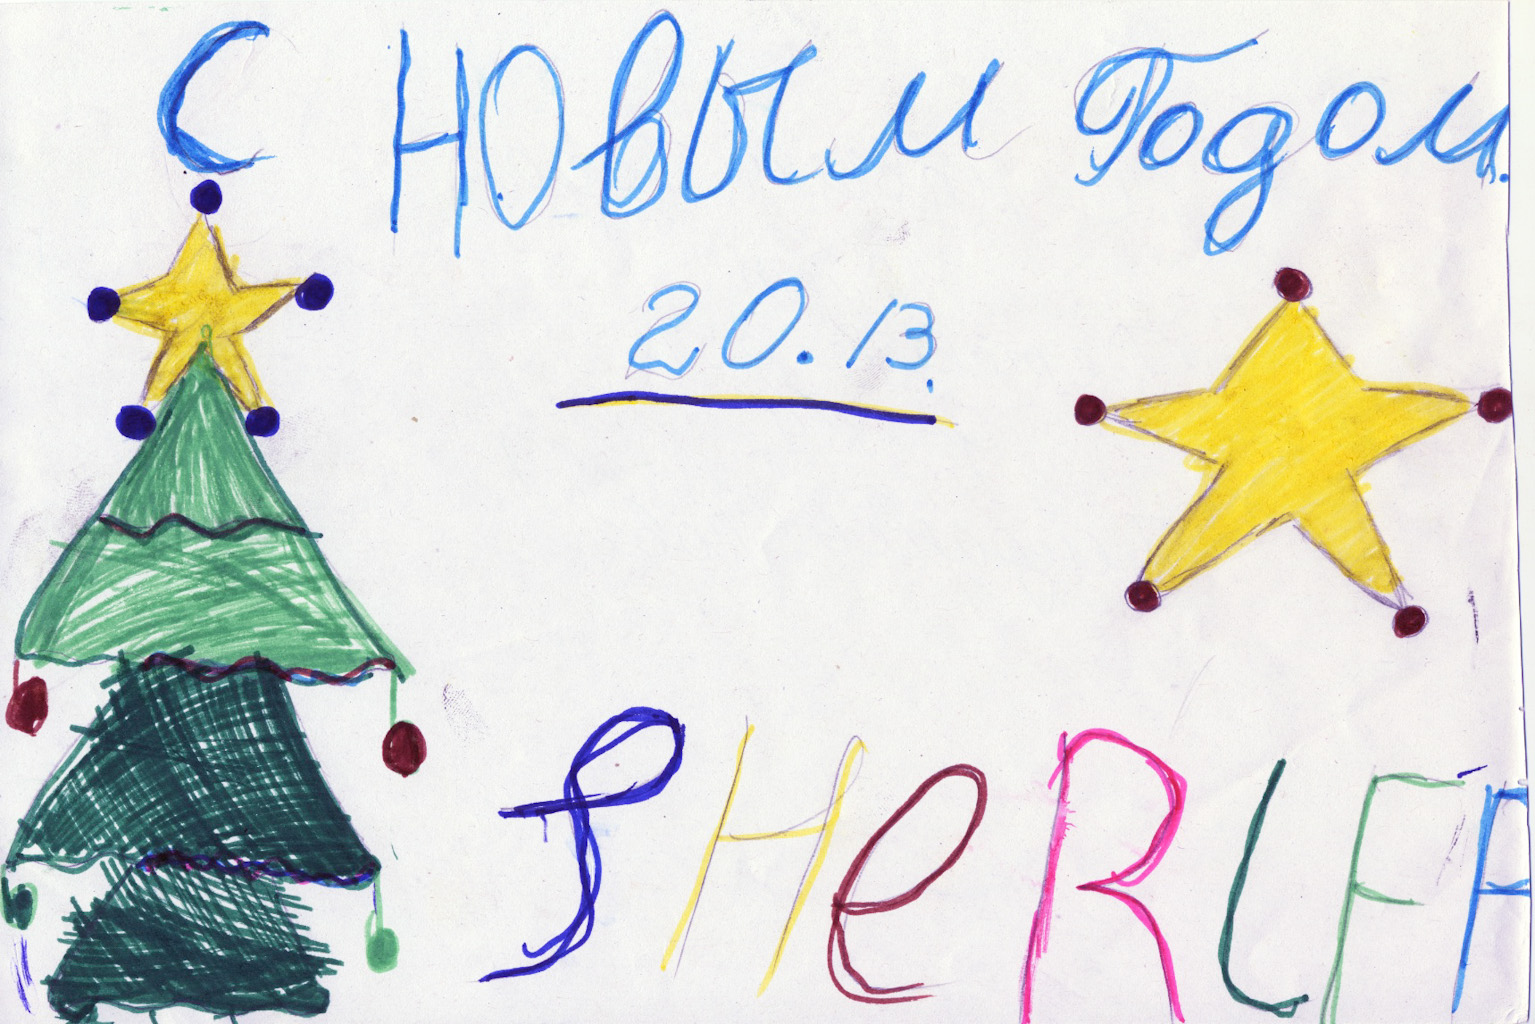 С Новым Годом.
20.13.
SHERLFF